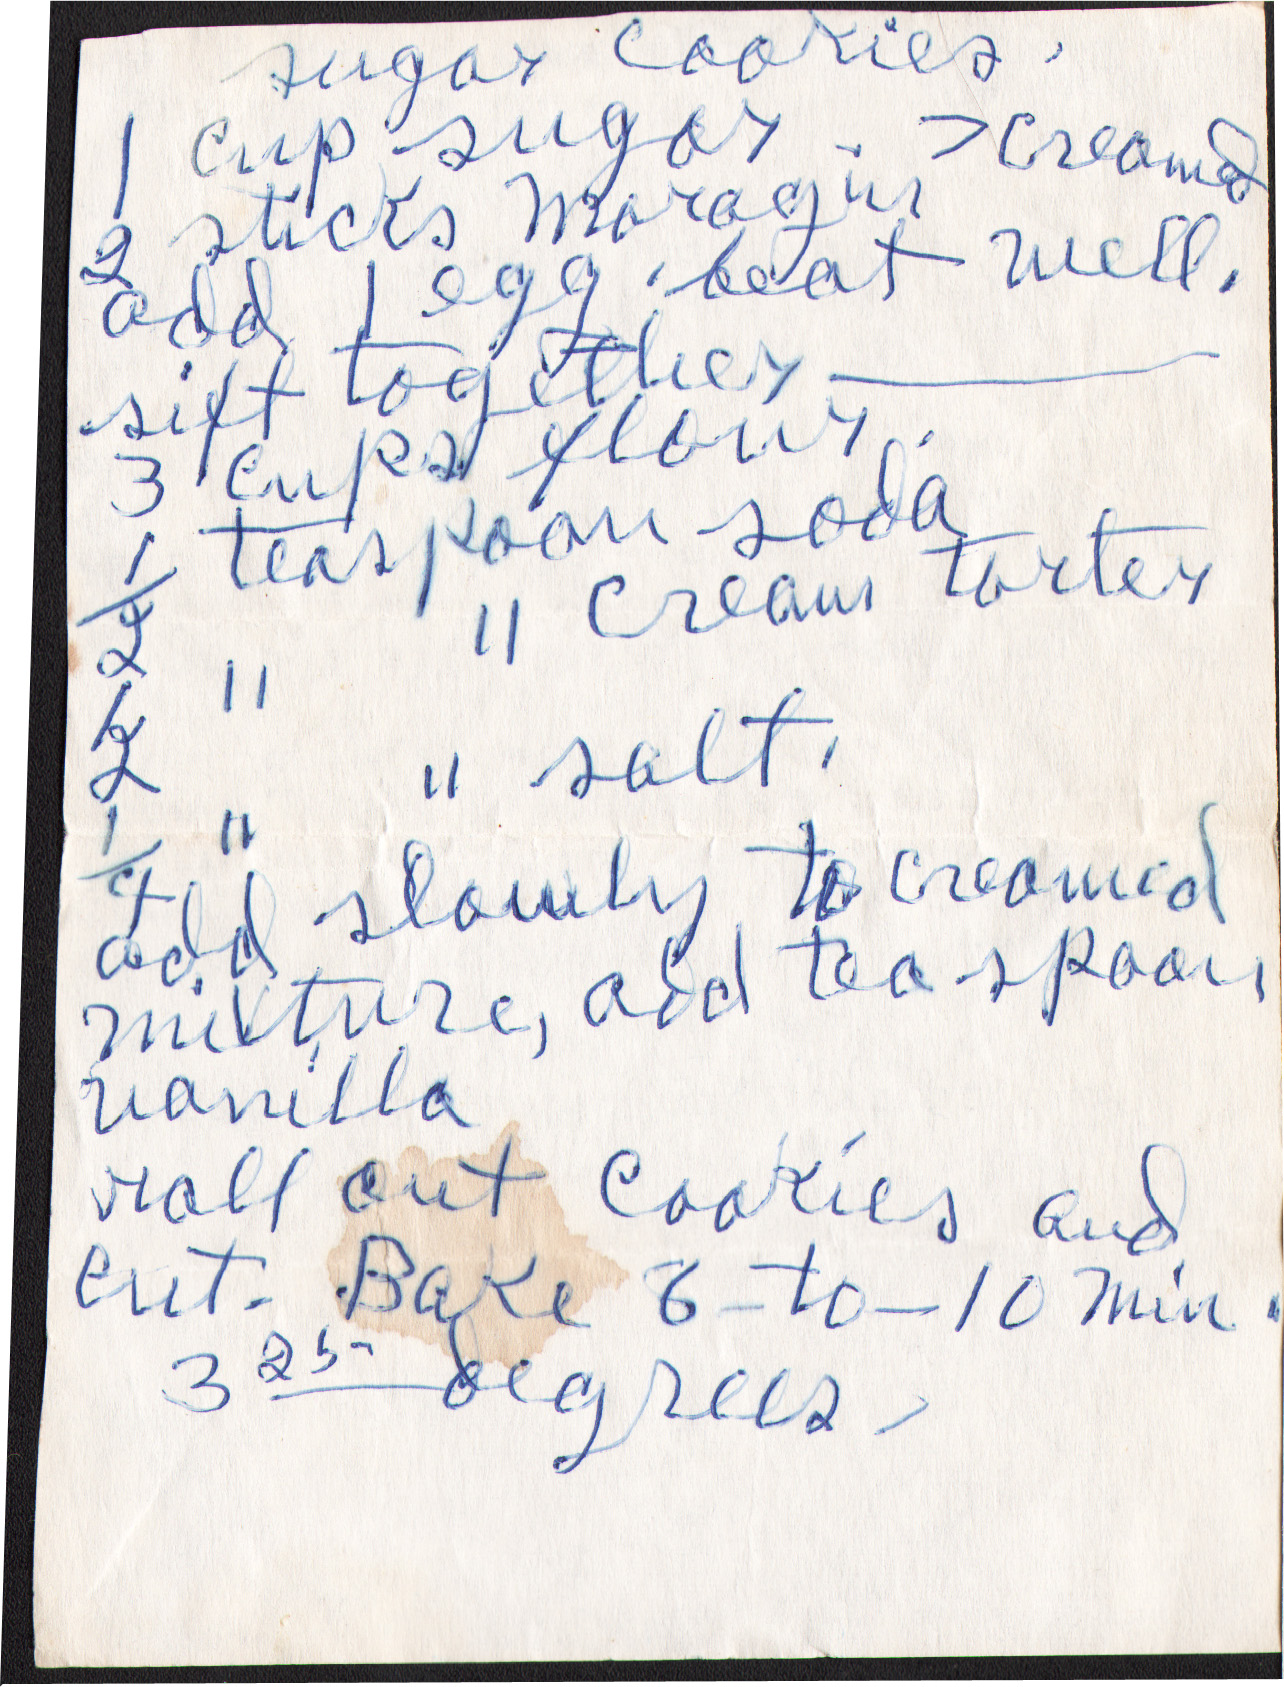 sugar cookies.
1 cup sugar. > creamed
2 sticks maragin
add 1 egg. beat well.
sift together ——
3 cups flour.
1/2 teaspoon soda
1/2 " " cream tarter
1/4 " " salt.
add slowly to creamed
mixture, add teaspoon
vanilla
roll out cookies and
cut. Bake 8-to-10 min.
325- degrees.